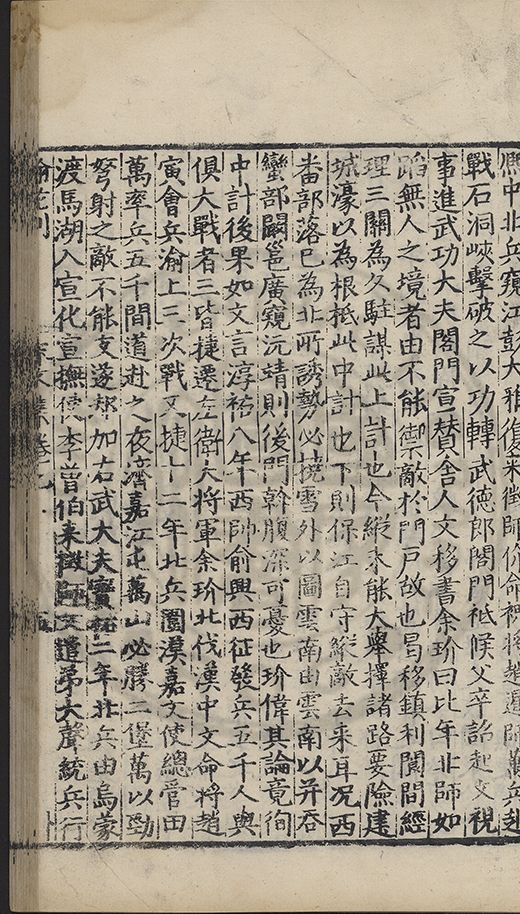 熈中北兵窺江彭大雅復来徴師价命裨将趙暹師萬兵赴
戰石洞峽擊破之以功轉武德郎閣門祗候父卒詔起文視
事進武功大夫閣門宣賛舍人文移書余玠曰比年北師如
蹈無人之境者由不能禦敵於門戸故也曷移鎮利閬間經
理三關為久駐謀此上計也今縱未能大舉擇諸路要險建
城濠以為根柢此中計也下則保江自守縱敵去来耳况西
畨部落已為北所誘勢必撓雪外以圖雲南由雲南以并吞
蠻部闞邕廣窺沅靖則後門斡腹深可憂也玠偉其論竟徇
中計後果如文言淳祐八年西帥俞興西征發兵五千人與
俱大戰者三皆捷遷左衛大将軍余玠北伐漢中文命将趙
寅會兵渝上三次戰又捷十二年北兵圍漢嘉文使總管田
萬率兵五千間道赴之夜濟嘉江屯萬山必勝二堡萬以勁
弩射之敵不能支遂却加右武大夫寳祐二年北兵由烏蒙
渡馬湖入宣化宣撫使李曽伯来徴師文遣弟大聲統兵行